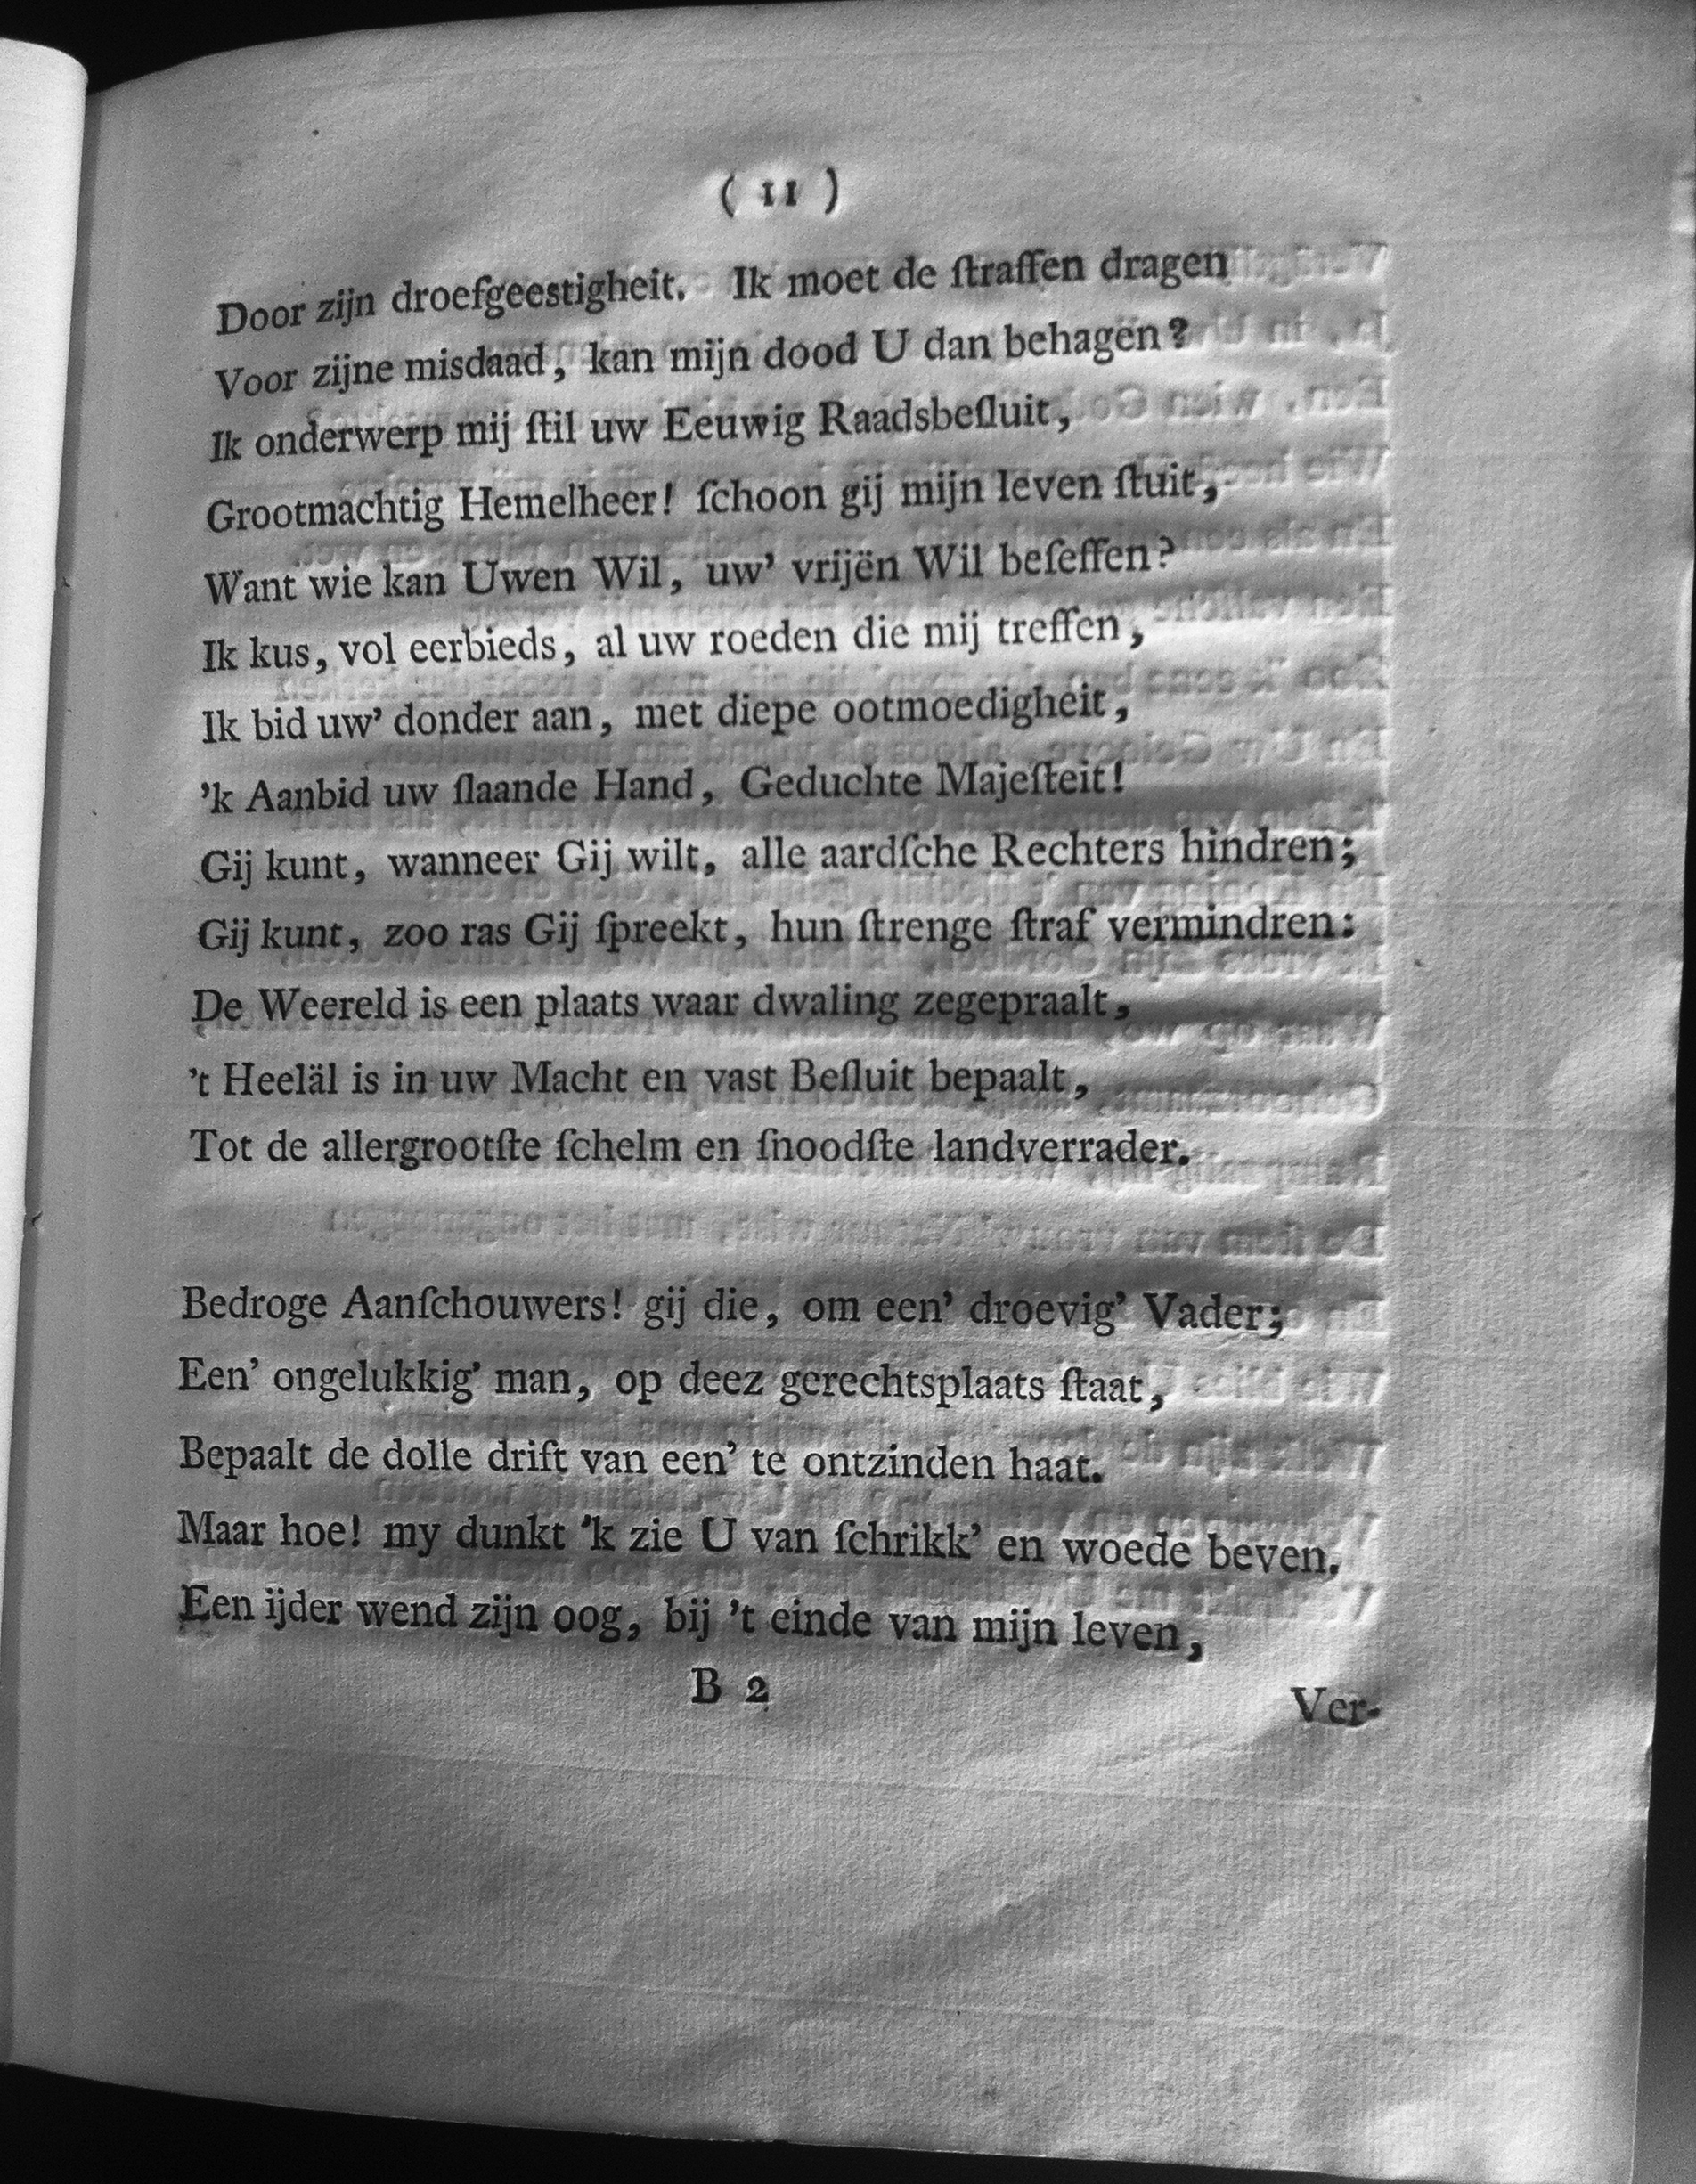 ( 11 )
Door zijn droefgeestigheit. Ik moet de ſtraffen dragen
Voor zijne misdaad, kan mijn dood U dan behagen?
Ik onderwerp mij ſtil uw Eeuwig Raadsbeſluit,
Grootmachtig Hemelheer! ſchoon gij mijn leven ſtuit,
Want wie kan Uwen Wil, uw' vrijën Wil beſeffen?
Ik kus, vol eerbieds, al uw roeden die mij treffen,
Ik bid uw' donder aan, met diepe ootmoedigheit,
'k Aanbid uw ſlaande Hand, Geduchte Majeſteit!
Gij kunt, wanneer Gij wilt, alle aardſche Rechters hindren;
Gij kunt, zoo ras Gij ſpreekt, hun ſtrenge ſtraf vermindren:
De Weereld is een plaats waar dwaling zegepraalt,
't Heeläl is in uw Macht en vast Beſluit bepaalt,
Tot de allergrootſte ſchelm en ſnoodſte landverrader.
Bedroge Aanſchouwers! gij die, om een' droevig' Vader;
Een' ongelukkig' man, op deez gerechtsplaats ſtaat,
Bepaalt de dolle drift van een' te ontzinden haat.
Maar hoe! my dunkt 'k zie U van ſchrikk' en woede beven.
Een ijder wend zijn oog, bij 't einde van mijn leven,
B 2
Ver-